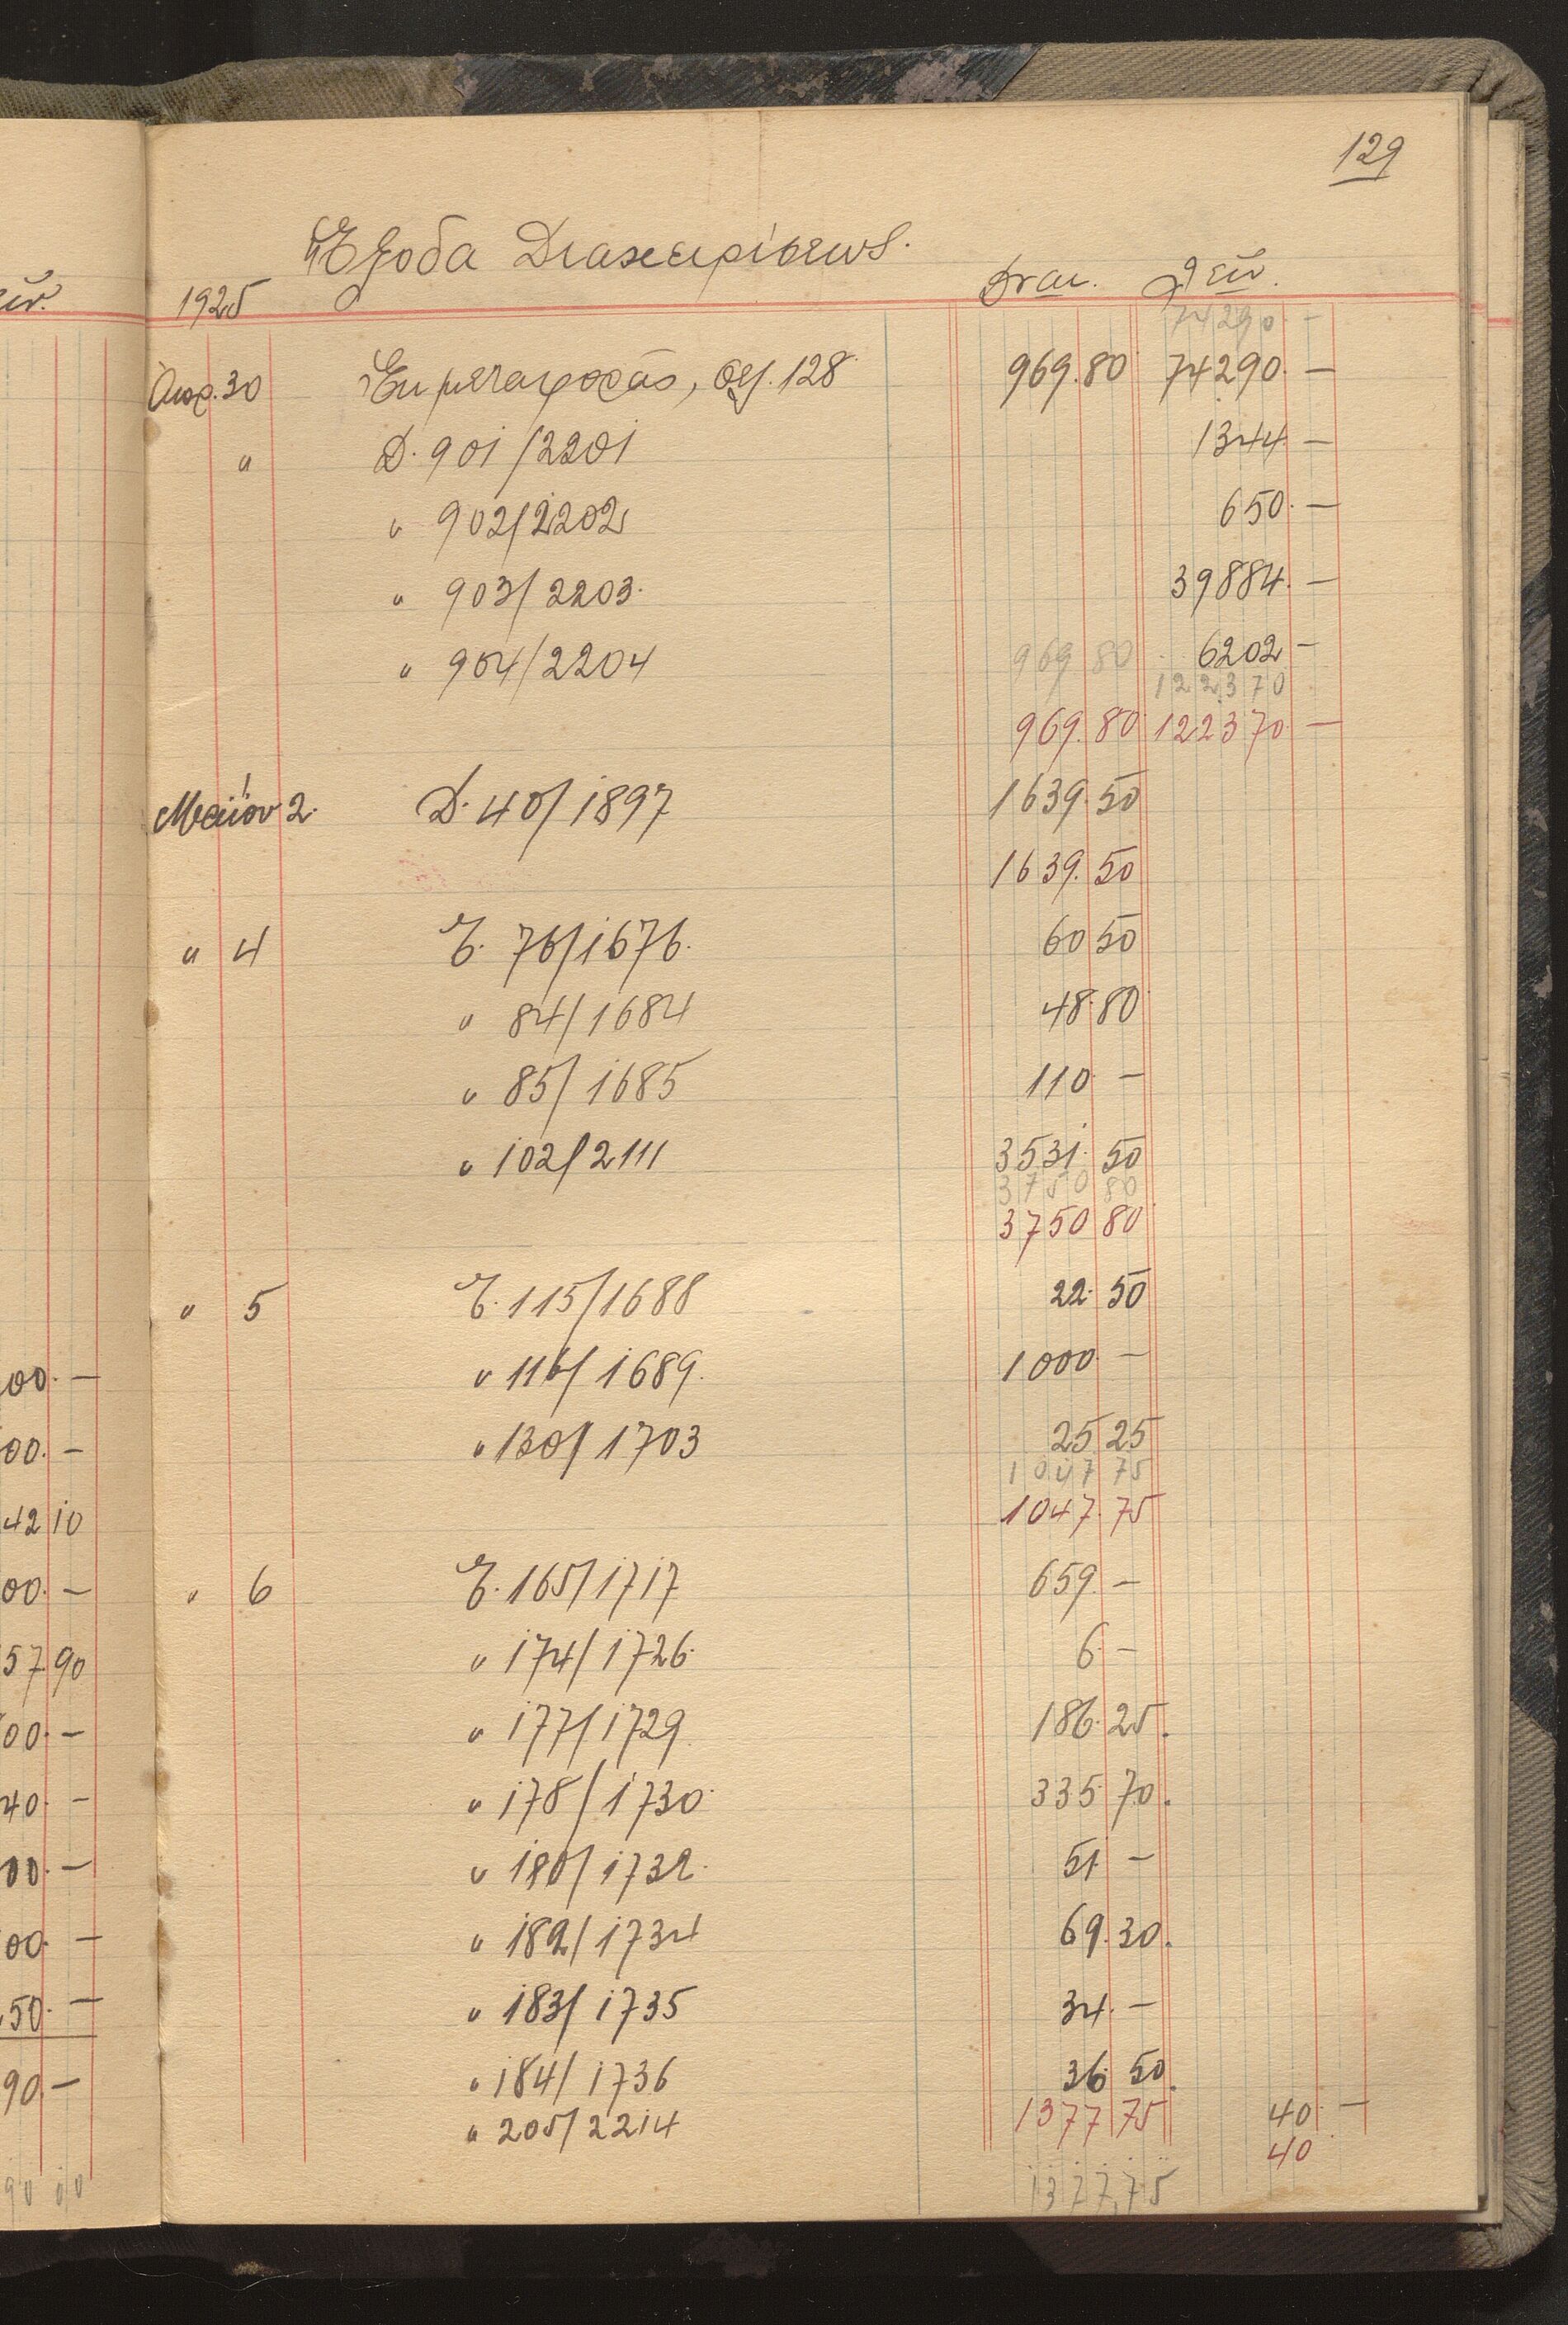 129
Ἔξοδα Διαχειρίσεως.
1925 Δραχ. Λεῦ.
74290 -
Απρ. 30 Ἐκ μεταφορᾶς, σελ. 128 969.80 74290. —
" Δ. 901/2201 1344 —
" 902/2202 650. —
" 903/2203. 39884. —
" 904/2204 969 80 6202 —
122370
969.80 122370. —
Μαΐου 2. Δ. 40/1897 1639.50
1639.50
" 4 Ε. 76/1676. 60 50
" 84/1684 48.80
" 85/1685 110. —
" 102/2111 3531. 50
3750 80
3750 80
" 5 Ε. 115/1688 22. 50
" 116/1689. 1000. —
" 130/1703 25.25
1047 75
1047.75
" 6 Ε. 165/1717 659. —
" 174/1726. 6. —
" 177/1729. 186.25.
" 178/1730. 335.70.
" 180/1732. 51 —
" 182/1734 69.30.
" 183/1735 34. —
" 184/1736 36. 50.
" 205/2214 1377 75 40. —
40
1377,75
εῦ.
00. —
00. —
42 10
00. —
57 90
00. —
40. —
00. —
00. —
50. —
90. —
90 00